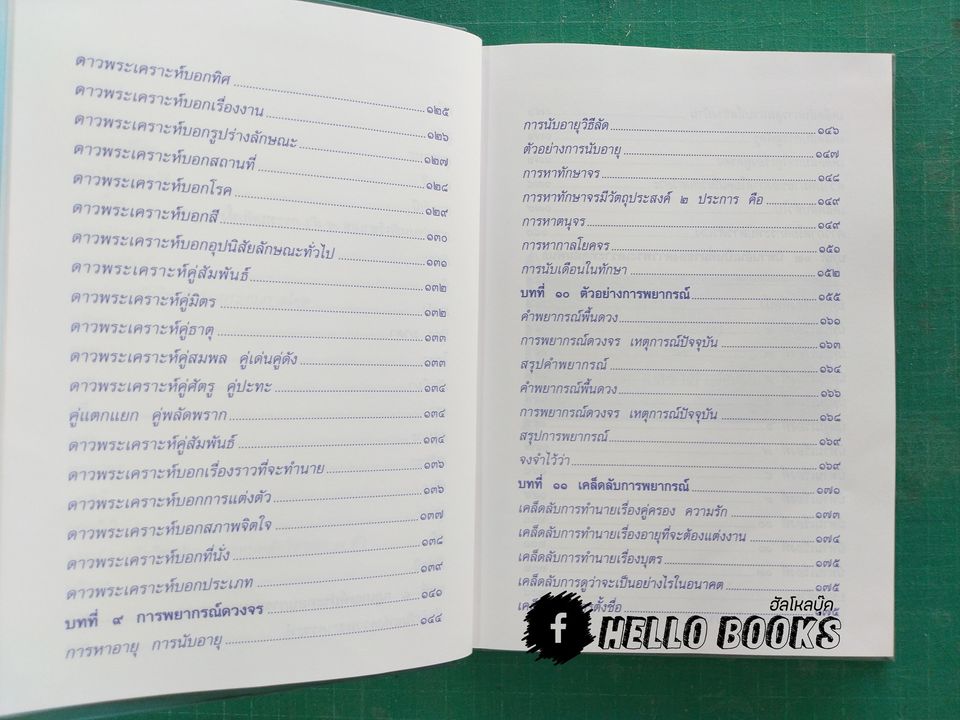 ดาวพระเคราะห์บอกทิศ ๑๒๕
ดาวพระเคราะห์บอกเรื่องงาน ๑๒๖
ดาวพระเคราะห์บอกรูปร่างลักษณะ ๑๒๗
ดาวพระเคราะห์บอกสถานที่ ๑๒๘
ดาวพระเคราะห์บอกโรค ๑๒๙
ดาวพระเคราะห์บอกสี ๑๓๐
ดาวพระเคราะห์บอกอุปนิสัยลักษณะทั่วไป ๑๓๑
ดาวพระเคราะห์คู่สัมพันธ์ ๑๓๒
ดาวพระเคราะห์คู่มิตร ๑๓๒
ดาวพระเคราะห์คู่ธาตุ ๑๓๓
ดาวพระเคราะห์คู่สมพล คู่เด่นคู่ดัง ๑๓๓
ดาวพระเคราะห์คู่ศัตรู คู่ปะทะ ๑๓๔
คู่แตกแยก คู่พลัดพราก ๑๓๔
ดาวพระเคราะห์คู่สัมพันธ์ ๑๓๔
ดาวพระเคราะห์บอกเรื่องราวที่จะทำนาย ๑๓๖
ดาวพระเคราะห์บอกการแต่งตัว ๑๓๖
ดาวพระเคราะห์บอกสภาพจิตใจ ๑๓๗
ดาวพระเคราะห์บอกที่นั่ง ๑๓๘
ดาวพระเคราะห์บอกประเภท ๑๓๙
บทที่ ๙ การพยากรณ์ดวงจร ๑๔๑
การหาอายุ การนับอายุ ๑๔๔
การนับอายุวิธีลัด ๑๔๖
ตัวอย่างการนับอายุ ๑๔๗
การหาทักษาจร ๑๔๘
การหาทักษาจรมีวัตถุประสงค์ ๒ ประการ คือ ๑๔๙
การหาตนุจร ๑๔๙
การหากาลโยคจร ๑๕๑
การนับเดือนในทักษา ๑๕๒
บทที่ ๑๐ ตัวอย่างการพยากรณ์ ๑๕๕
คำพยากรณ์พื้นดวง ๑๖๑
การพยากรณ์ดวงจร เหตุการณ์ปัจจุบัน ๑๖๓
สรุปคำพยากรณ์ ๑๖๔
คำพยากรณ์พื้นดวง ๑๖๖
การพยากรณ์ดวงจร เหตุการณ์ปัจจุบัน ๑๖๘
สรุปการพยากรณ์ ๑๖๙
จงจำไว้ว่า ๑๖๙
บทที่ ๑๑ เคล็ดลับการพยากรณ์ ๑๗๑
เคล็ดลับการทำนายเรื่องคู่ครอง ความรัก ๑๗๓
เคล็ดลับการทำนายเรื่องอายุที่จะต้องแต่งงาน ๑๗๔
เคล็ดลับการทำนายเรื่องบุตร ๑๗๕
เคล็ดลับการดูว่าจะเป็นอย่างไรในอนาคต ๑๗๕
ตั้งชื่อ
ฮัลโหลบุ๊ค
f HELLO BOOKS